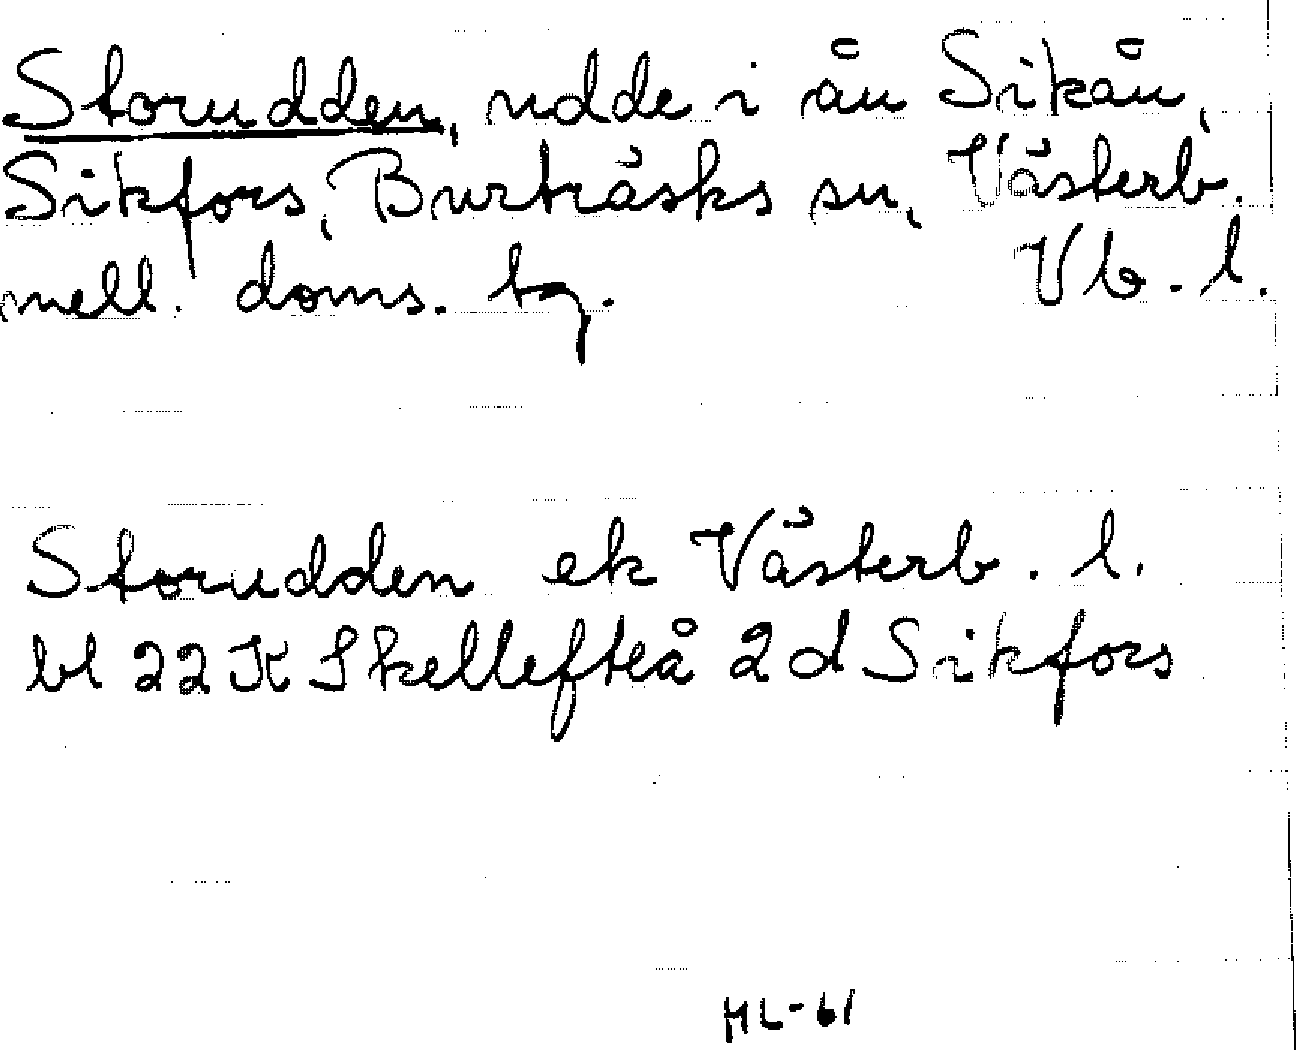 Storudden, udde i ån Sikån,
Sikfors, Burträsks sn, Västerb.
mell. doms. tg. Vb. l.
Storudden ek Västerb. l.
bl 22K Skellefteå 2d Sikfors
HL-61